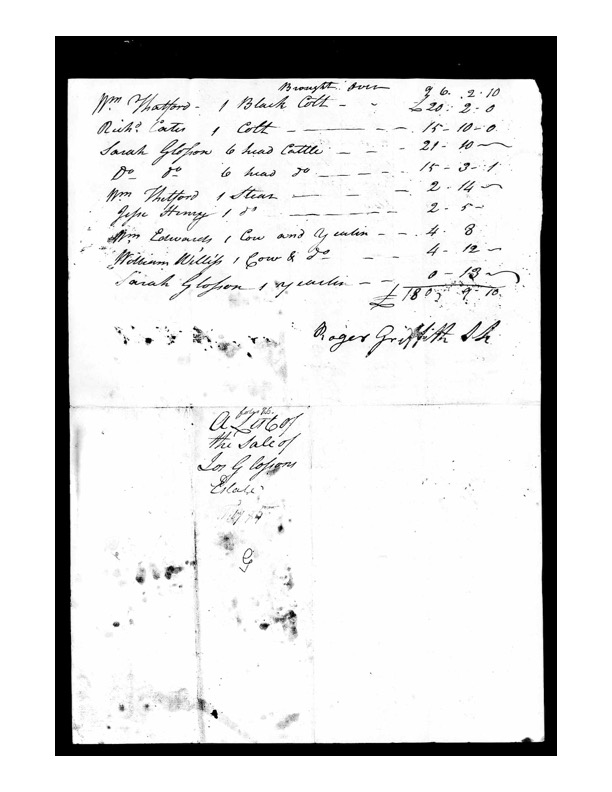 Brought Over 96. 2. 10
Wm Thatford - 1 Black Colt - - £20. 2. 0
Richd. Eates 1 Colt - - - - 15 - 10 - 0
Sarah Glosson 6 head Cattle - - - 21 - 10 -
Do do 6 head do - - - 15 - 3 - 1
Wm Thetford 1 Stear - - - 2 - 14 -
Jesse Henry 1 do - - - - 2 - 5 -
Wm Edwards 1 Cow and Yearlin - - 4 - 8
William Williss 1 Cow & Do - - 4 - 12 -
Sarah Glosson 1 yearlin - - 0 - 13 -
£ 180, 9 - 10
Roger Griffith
A List of
the Sale of
Jos Glossons
Estate
G